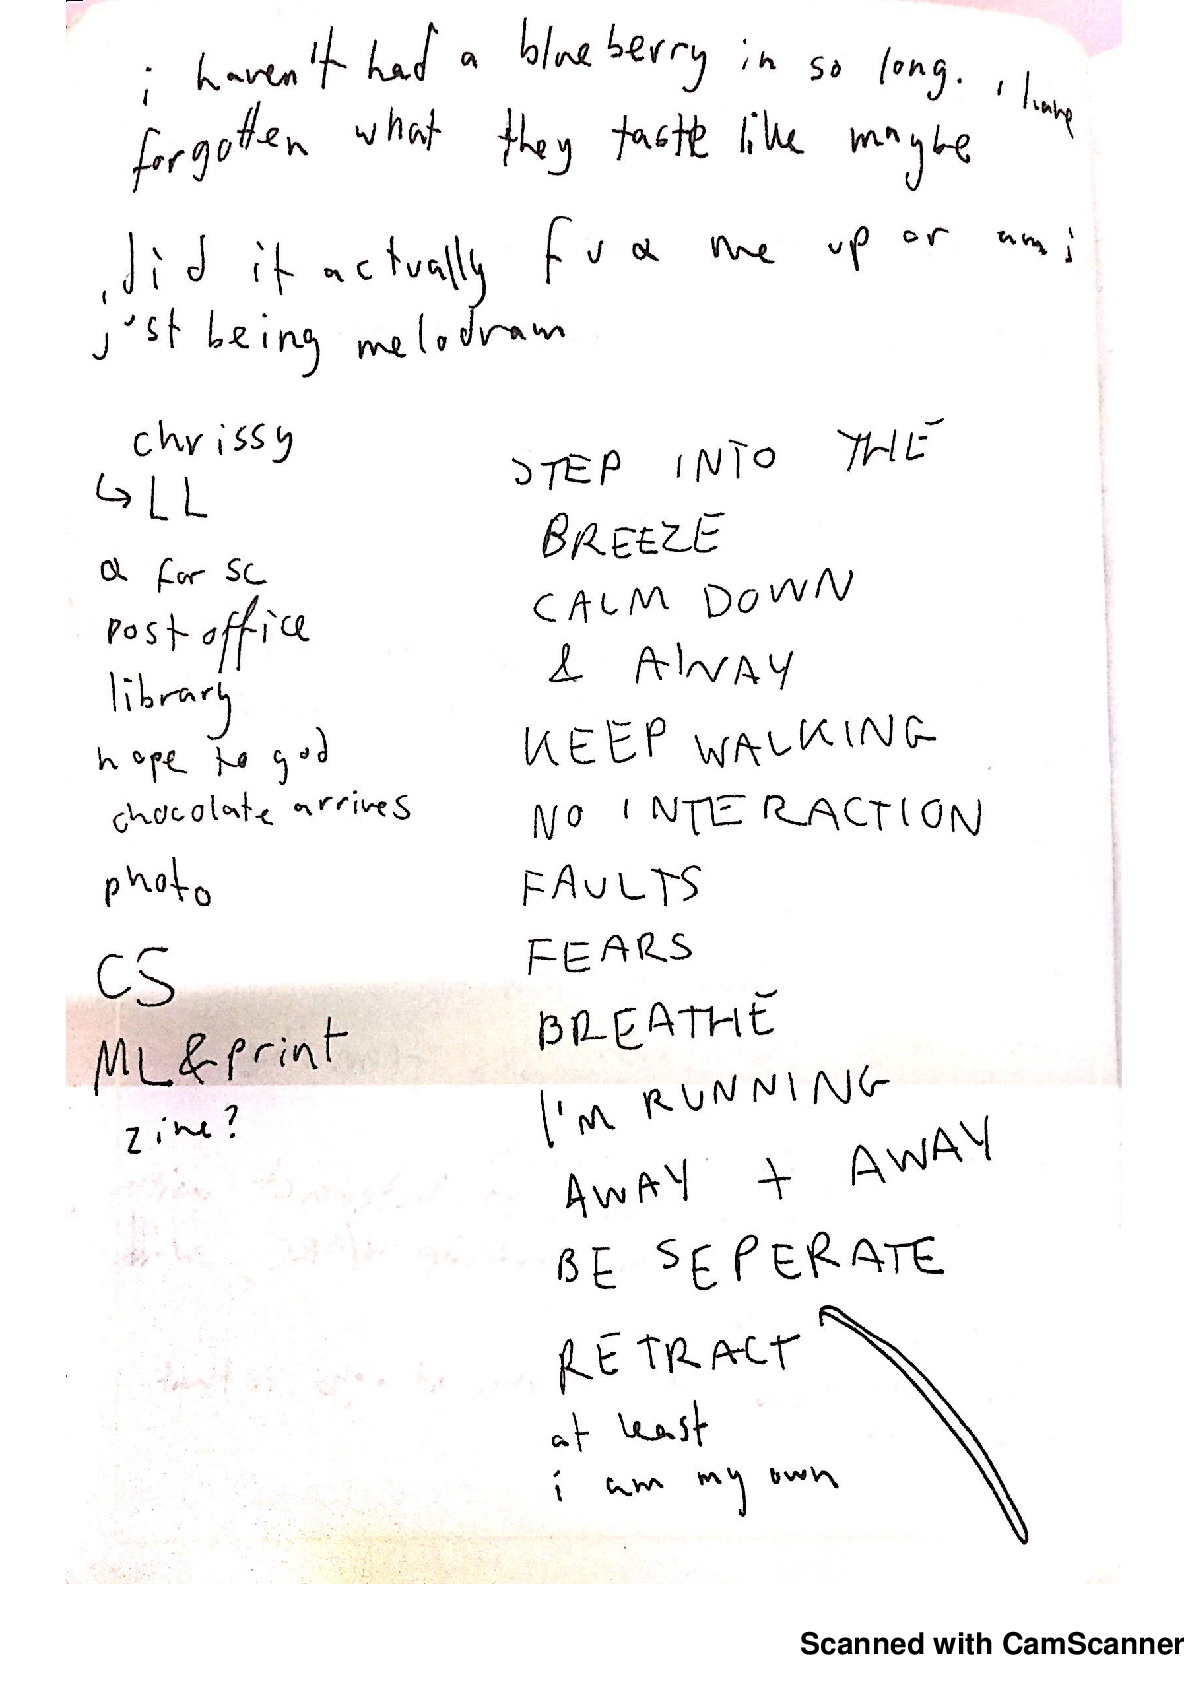 i haven't had a blueberry in so long. i have
forgotten what they taste like maybe
did it actually fuck me up or am i
just being melodram
chrissy
↳ LL
a for sc
post office
library
hope to god
chocolate arrives
photo
CS
ML & print
zine?
STEP INTO THE
BREEZE
CALM DOWN
& AWAY
KEEP WALKING
NO INTERACTION
FAULTS
FEARS
BREATHE
I'M RUNNING
AWAY + AWAY
BE SEPERATE
RETRACT
at least
i am my own
Scanned with CamScanner